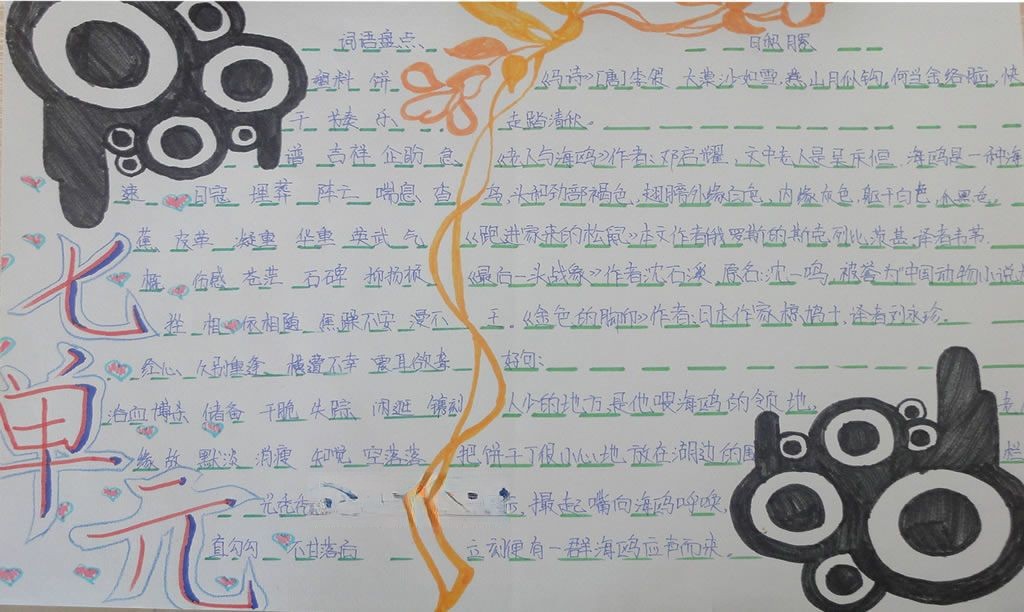 七单元
词语盘点
塑料 饼
干 节奏 乐
谱 吉祥 企盼 急
速 日寇 埋葬 阵亡 喘息 沓
蕉 皮革 凝重 华重 英武 气
概 伤感 苍茫 石碑 抑扬顿
挫 相依相随 焦躁不安 漫不
经心 久别重逢 横遭不幸 震耳欲聋
浴血博杀 储备 干脆 失踪 闲逛 镌刻
缘故 黯淡 消瘦 知觉 空落落
光秃秃
直勾勾 不甘落后
日积月累
《马诗》[唐]李贺 大漠沙如雪,燕山月似钩,何当金络脑,快
走踏清秋。
《老人与海鸥》作者:邓启耀,文中老人是吴庆恒 海鸥是一种海
鸟,头部颈部褐色,翅膀外缘白色,内缘灰色,躯干白色,
《跑进家来的松鼠》本文作者俄罗斯的斯克列比茨基,译者韦苇.
《最后一头战象》作者沈石溪 原名:沈一鸣,被誉为"中国动物小说大
王。《金色的脚印》作者:日本作家椋鸠十,译者刘永珍.
好句:
人少的地方,是他喂海鸥的领地。
把饼干丁很小心地放在湖边的围 栏
撮起嘴向海鸥呼唤,
立刻便有一群海鸥应声而来。